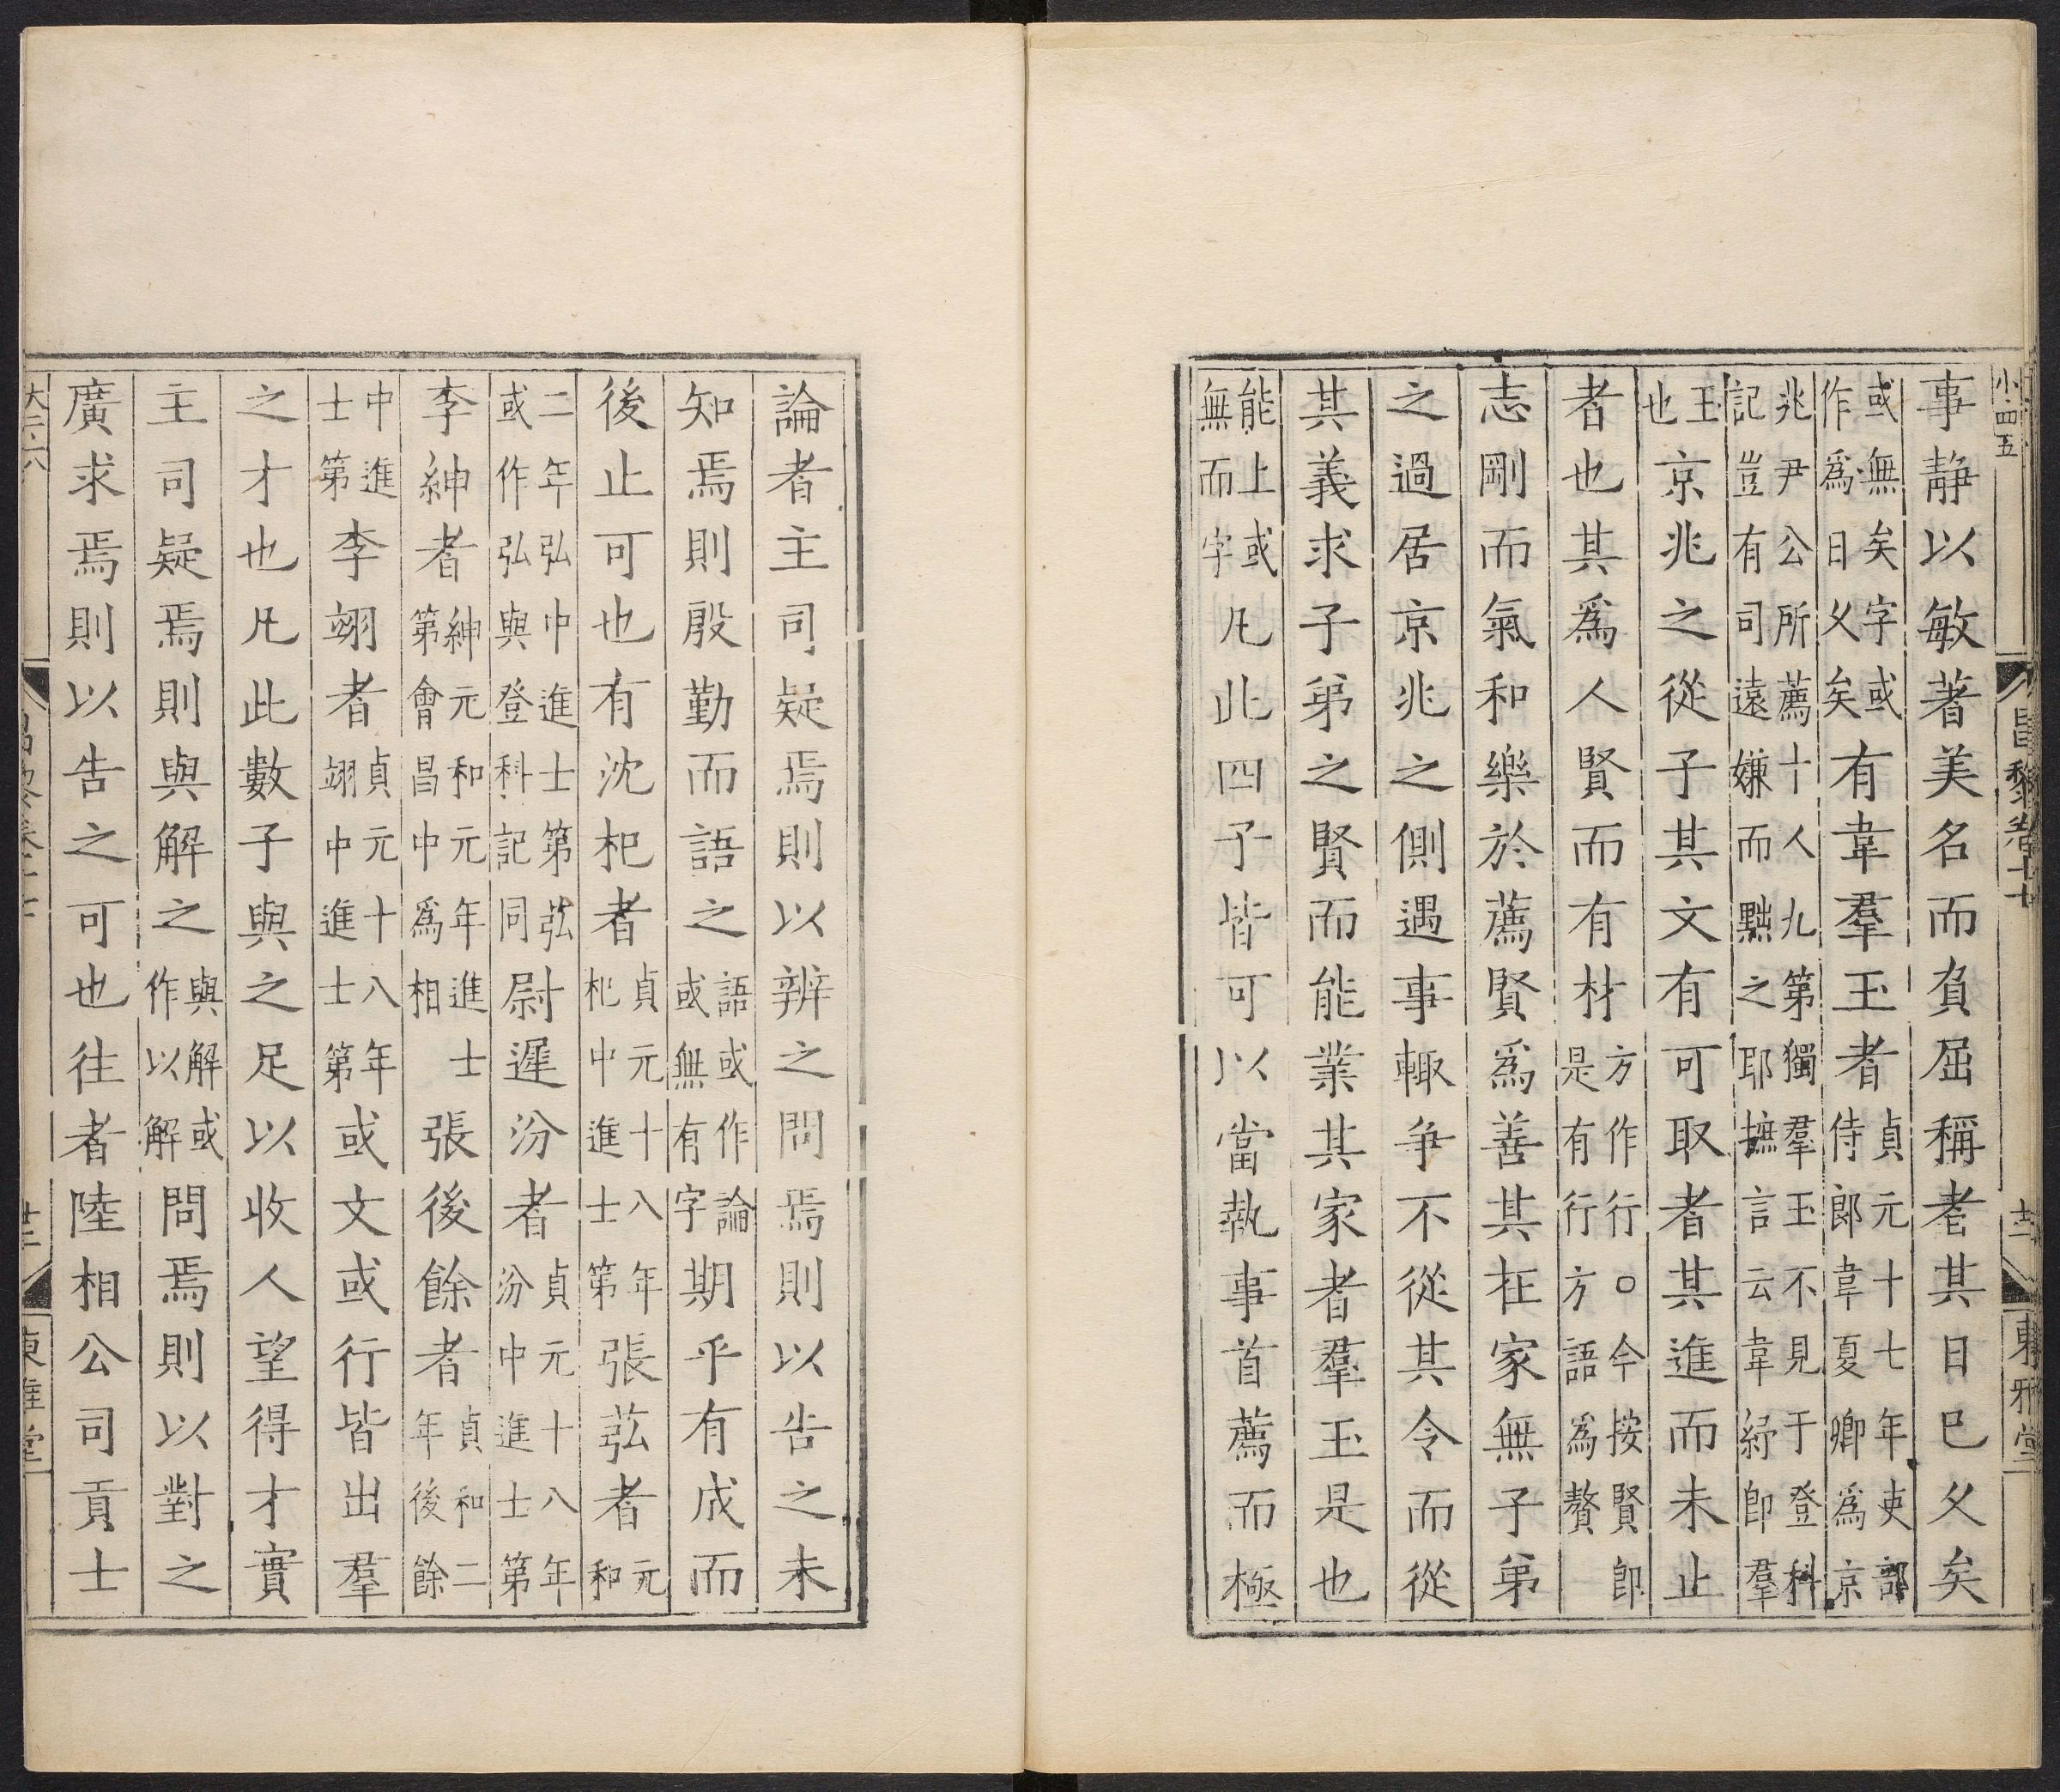 小四五
昌黎卷十七
十二
東雅堂
事静以敏著美名而負屈稱者其日巳久矣
或無矣字或作爲日久矣有韋羣玉者貞元十七年吏部侍郎韋夏卿爲京
兆尹公所薦十人九第獨羣玉不見于登科記豈有司遠嫌而黜之耶摭言云韋紓卽羣
玉也京兆之從子其文有可取者其進而未止
者也其爲人賢而有材方作行行○今按賢卽是有行方語爲贅
志剛而氣和樂於薦賢爲善其在家無子弟
之過居京兆之側遇事輙爭不從其令而從
其義求子弟之賢而能業其家者羣玉是也
能上或無而字凡此四子皆可以當執事首薦而極
論者主司疑焉則以辨之問焉則以告之未
知焉則殷勤而語之語或作論或無有字期乎有成而
後止可也有沈杞者貞元十八年杞中進士第張苰者元和
二年弘中進士第苰或作弘與登科記同尉遲汾者貞元十八年汾中進士第
李紳者紳元和元年進士第會昌中爲相張後餘者貞和二年後餘
中進士第李翊者貞元十八年翊中進士第或文或行皆出羣
之才也凡此數子與之足以收人望得才實
主司疑焉則與解之與解或作以解問焉則以對之
廣求焉則以告之可也往者陸相公司貢士
大六
昌黎卷十七
東雅堂